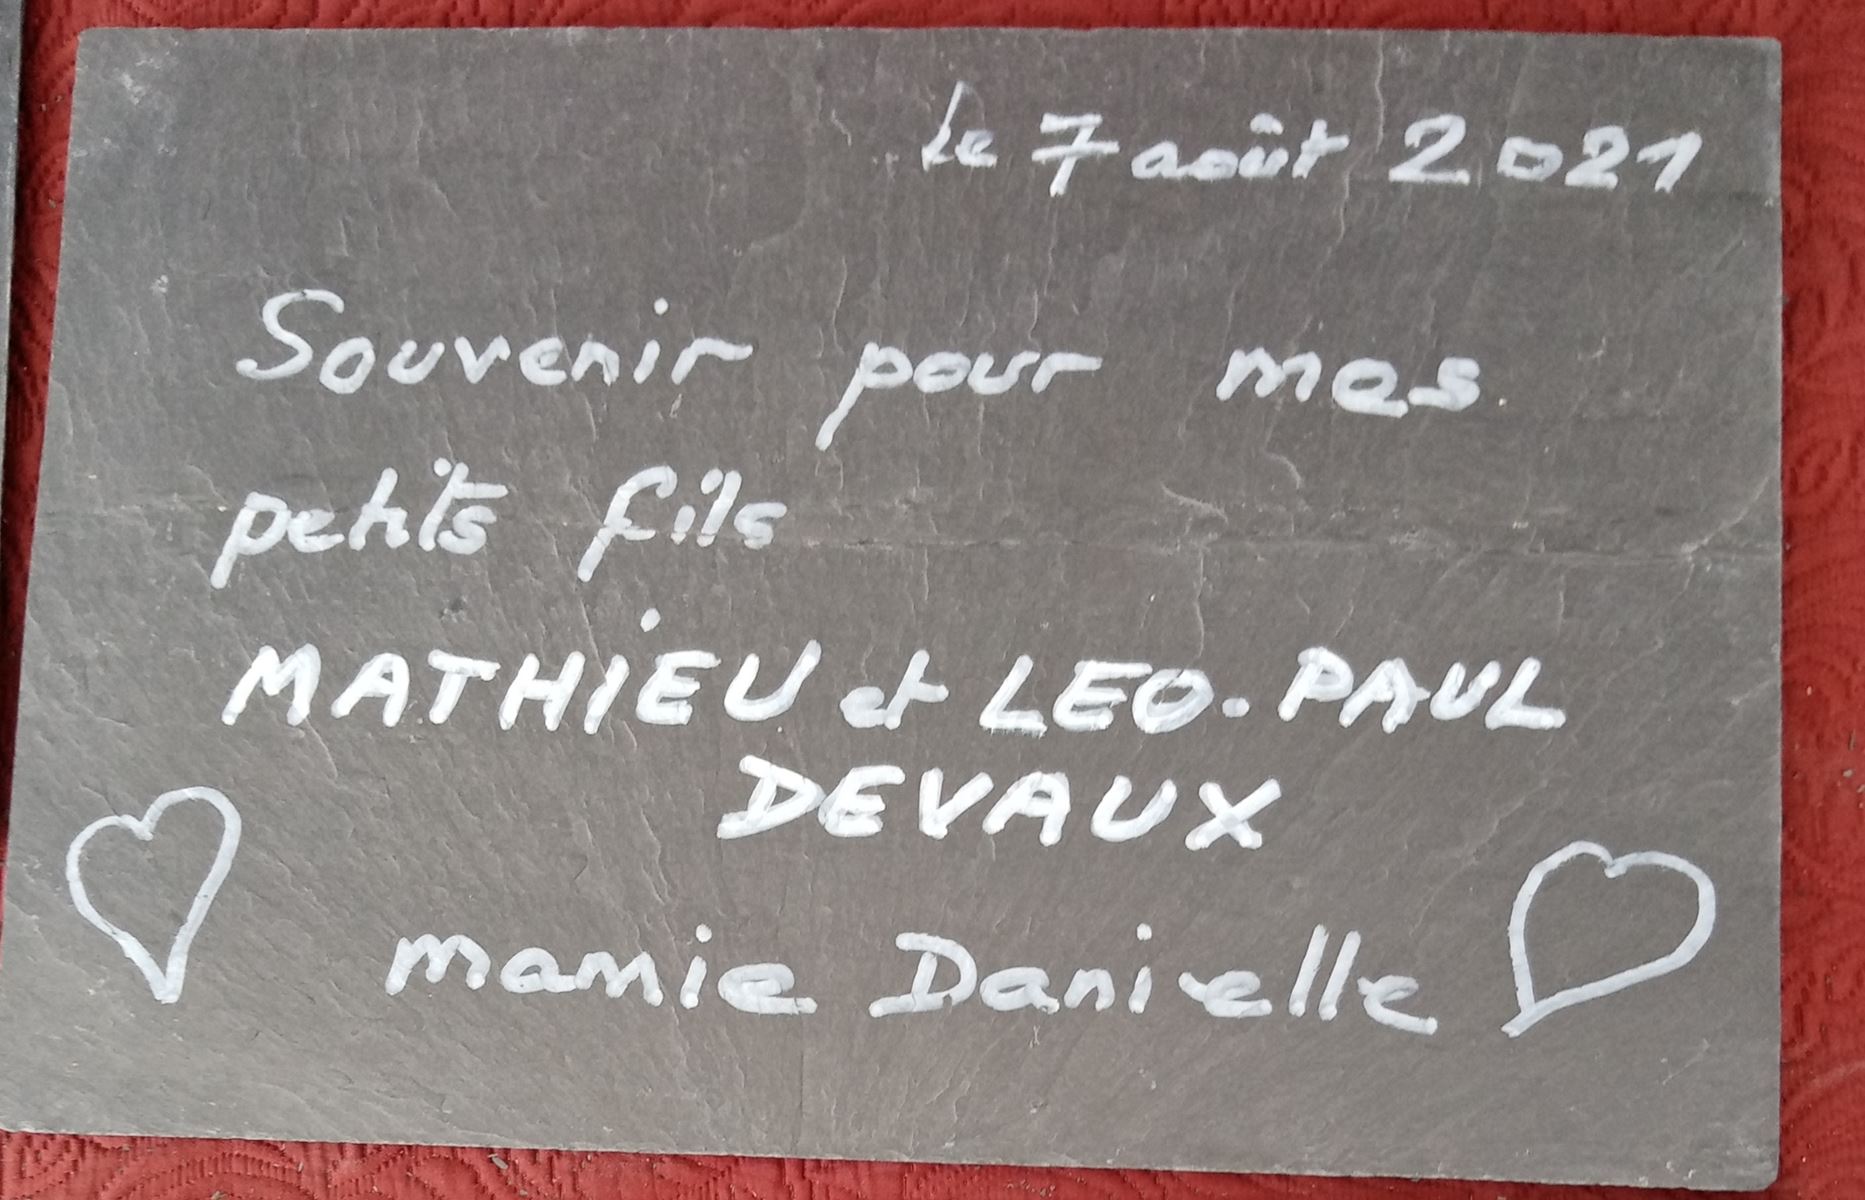 Le 7 août 2021
Souvenir pour mes
petits fils
MATHIEU et LEO.PAUL
DEVAUX
mamie Danielle